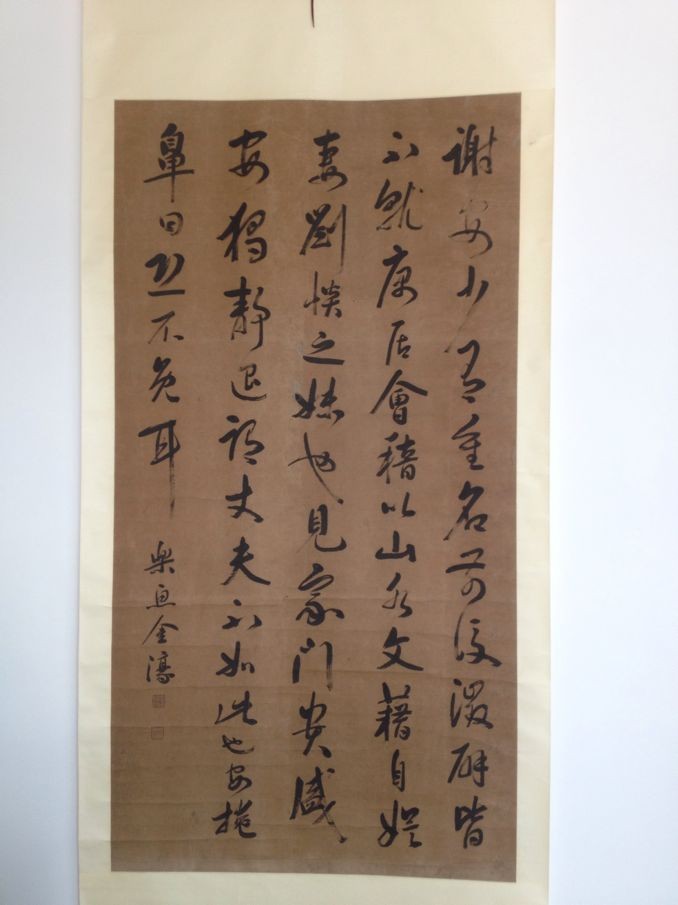 謝安少有重名前後徵辟皆
不就寓居會稽以山水文藉自娛
妻劉惔之妹也見家門貴盛
安獨靜退謂丈夫不如此也安掩
鼻曰恐不免耳
樂金